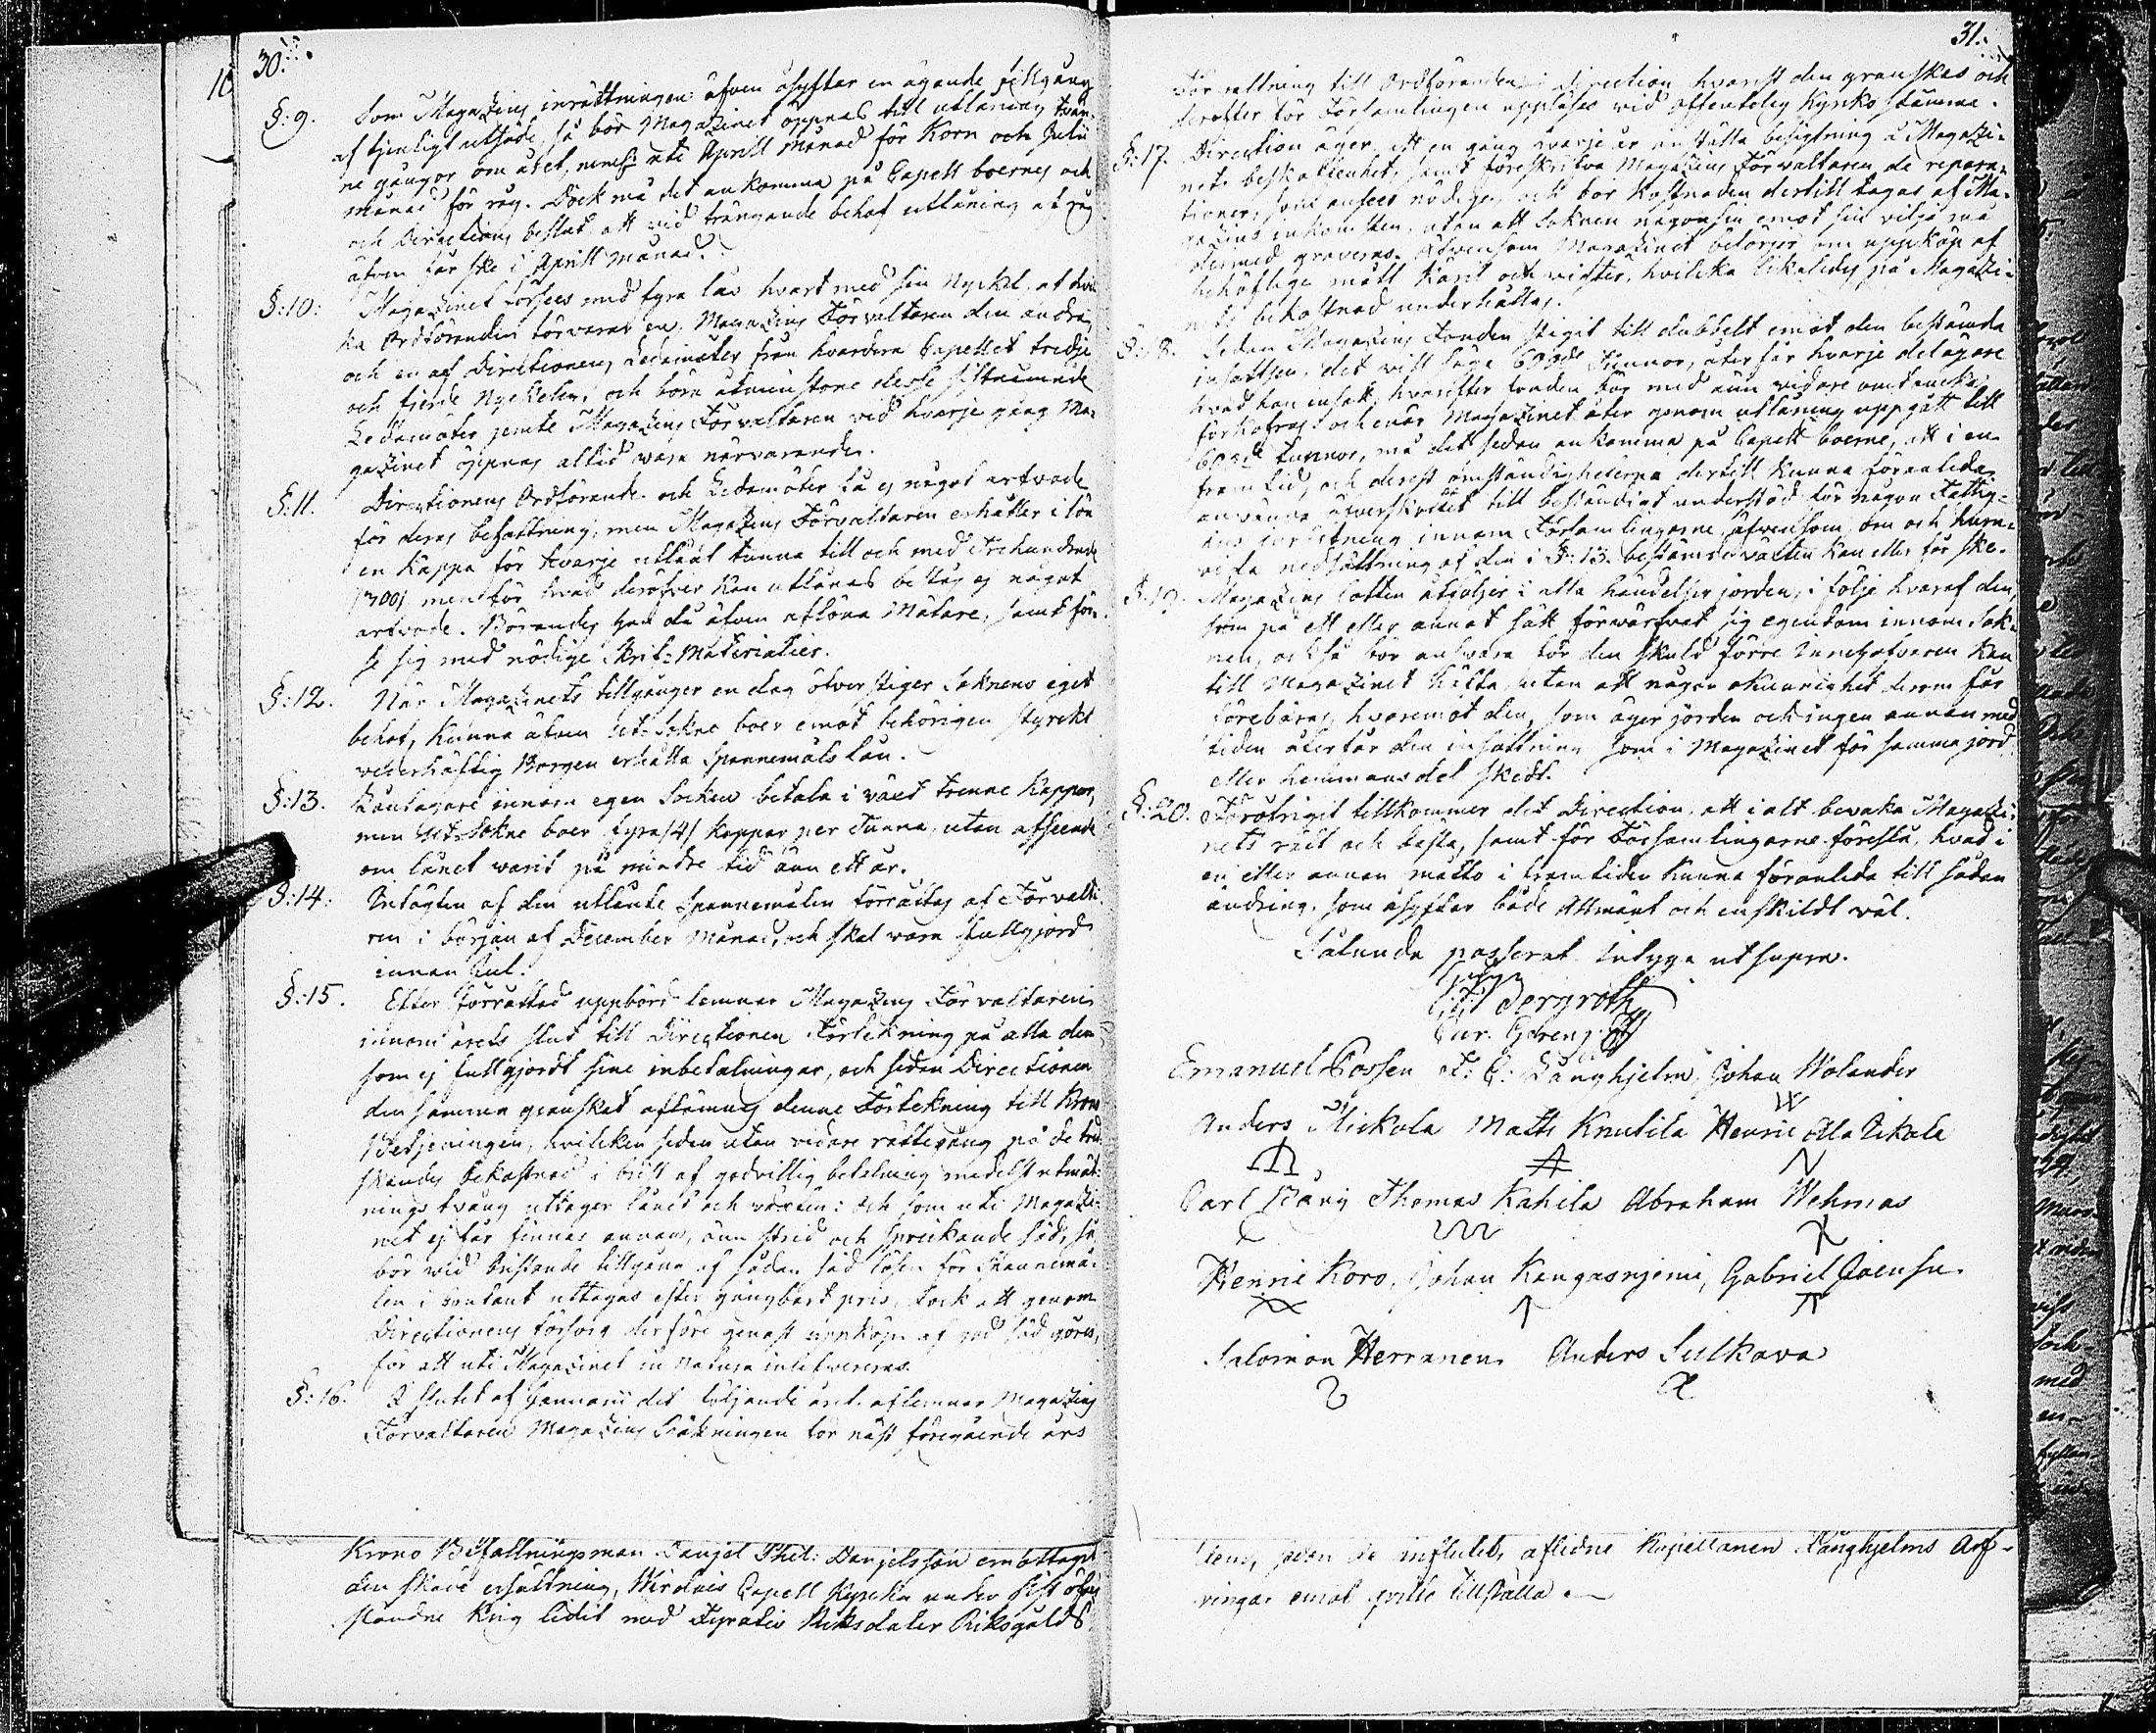 30.
§: 9. Som Magazins inrättningen äfven åsyftar en ägande tillgång
af tjenligt utsäde, så bör Magazinet öppnas till utlåning tvän-
ne gångor om året, neml: uti April månad för Korn och Julii
månad för råg. Dock må det ankomma på Capell boernes och
och Directions beslut, att vid trängande behof utlåning af råg
äfven får ske i April månad.
§: 10: Magazinet förses med fyra lås hvart med sin Nyckel, af hvil-
ka Ordföranden förvarar en, Magazins Förvaltaren den andra,
och en af Directionens Ledamöter från hvardera Capellet tredje
och fjerde Nyckelen, och böra åtminstone desse sistnämnde
Ledamöter jemte Magazins Förvaltaren vid hvarje gång Ma-
gazinet öppnas alltid vara närvarande.
§: 11. Directionens Ordförande och Ledamöter få ej något arfvode
för deras befattning, men Magazins Förvaltaren erhåller i lön
en Kappa för hvarje utlånt tunna till och med Trehundrade
/300/ men för hvad deröfver kan utlånas bestås ej något
arfvode. Börandes han då äfven aflöna Mätare, samt för-
se sig med nödige Skrif-Materialier.
§: 12. När Magazinets tillgånger en dag öfverstiger Soknens eget
behof, kunna äfven Ut-Sokne boer emot behörigen styrkt
vederhäftig Borgen erhålla Spannemåls lån.
§: 13. Låntagare innom egen Socken betala i växt trenne Kappor,
men Ut-Sokne boer fyra /4/ kappor per Tunna, utan afseende
om lånet varit på mindre tid än ett år.
§: 14: Intägten af den utlånte Spannemålen förrättas af Förvalta-
ren i början af December Månad, och skal vara fullgjord
innan Jul.
§: 15. Efter förrättad uppbörd lemnar Magazins Förvaltaren
innom årets slut till Directionen Förtekning på alla dem
som ej fullgjordt sine inbetalningar, och sedan Directionen
den samma granskat aflämnas denne Förtekning till Krono
Betjeningen, hvilken sedan utan vidare rättegång på de tred-
skandes bekostnad i brist af godvillig betalning medelst utmät-
nings tvång uttager lånet och växten: och som uti Magazi-
net ej får finnas annan, än strid och spriskande säd, så
bör vid bristande tillgång af sådan säd lösen för Spannemå-
len i Contant uttagas efter gångbart pris, dock att genom
Directionens försorg derföre genast uppköp af god säd göres,
för att uti Magazinet in natura inlefvereras.
§: 16. I slutet af Januarii det följande året aflemnar Magazins
Förvaltaren Magazins Räkningen för näst föregående års
Krono Befallningsman Danjel Phil: Danjelsson emottagit
den skade ersättning, Wirdois Capell Kyrka under sist öfver-
ståndne Krig lidit med Fyratio Riksdaler Riksgälds
31.
Förvaltning till Ordföranden i Direction hvarest den granskas och
derefter för Församlingen uppläses vid offentelig Kyrko stämma.
§: 17. Direction äger, att en gång hvarje år anställa besigtning å Magazi-
nets beskaffenhet, samt föreskrifva Magazins Förvaltaren de repara-
tioner, som anses nödige, och bör Kostnaden dertill tagas af Ma-
gazins inkomsten, utan att Soknen någonsin emot sin vilja må
dermed graveras. Äfvensom Magazinet besörjer om uppköp af
behöflige mått kärl och vigter, hvilka likaledes på Magazi-
nets bekostnad underhållas.
§: 18. Sedan Magazins Fonden stigit till dubbelt emot den bestämda
insattsen, det vill säga 60 Tunnor, återfår hvarje delägare
hvad han insatt, hvarefter fonden bör med nun vidare omtencka
förkofras och enär Magazinet åter genom utlåning uppgått till
60 Tunnor, må det sedan ankomma på Capell boerne, att i en
framtid, och derest omständigheterna dertill kunna föranleda,
använda öfverskottet till beständigt understöd för någon Fattig-
hus inrättning innom Församlingarne, äfvensom om och huru-
vida nedsättning af den i §: 13. bestämda växten kan eller får ske.
§: 19. Magazins lotten åtföljer i alla händelser jorden, i följe hvaraf den,
som på ett eller annat sätt förvärfvat sig egendom innom Sok-
nen, också bör ansvara för den skuld förre Innehafvaren kan
till Magazinet häfta, utan att någon okunnighet derom får
förebäras, hvaremot den, som äger jorden och ingen annan med
tiden återfår den insättning som i Magazinet för samma jord
eller hemmansdel skedt.
§: 20. Föröfrigit tillkommer det Direction, att i alt bevaka Magazi-
nets rätt och bästa, samt för Församlingarne föreslå, hvad i
en eller annan måtto i framtiden kunna föranleda till sådan
ändring, som åsyftar både Allmänt och enskildt väl.
Sålunda passerat intyga ut supra.
Bergroth
Emanuel Possen F: C: Länghjelm, Johan Wolander
Anders Mickola Matts Knutila Henric Ala Pikala
Carl Bäng Thomas Kahila Abraham Wehmas
Henric Koro, Johan Kangasnjemi, Gabriel Joensu.
Salomon Herranen Anders Sulkava
dens, sedan de influtit, aflidne Kapellanen Länghjelms Arf-
vingar emot qvitto tillställa.